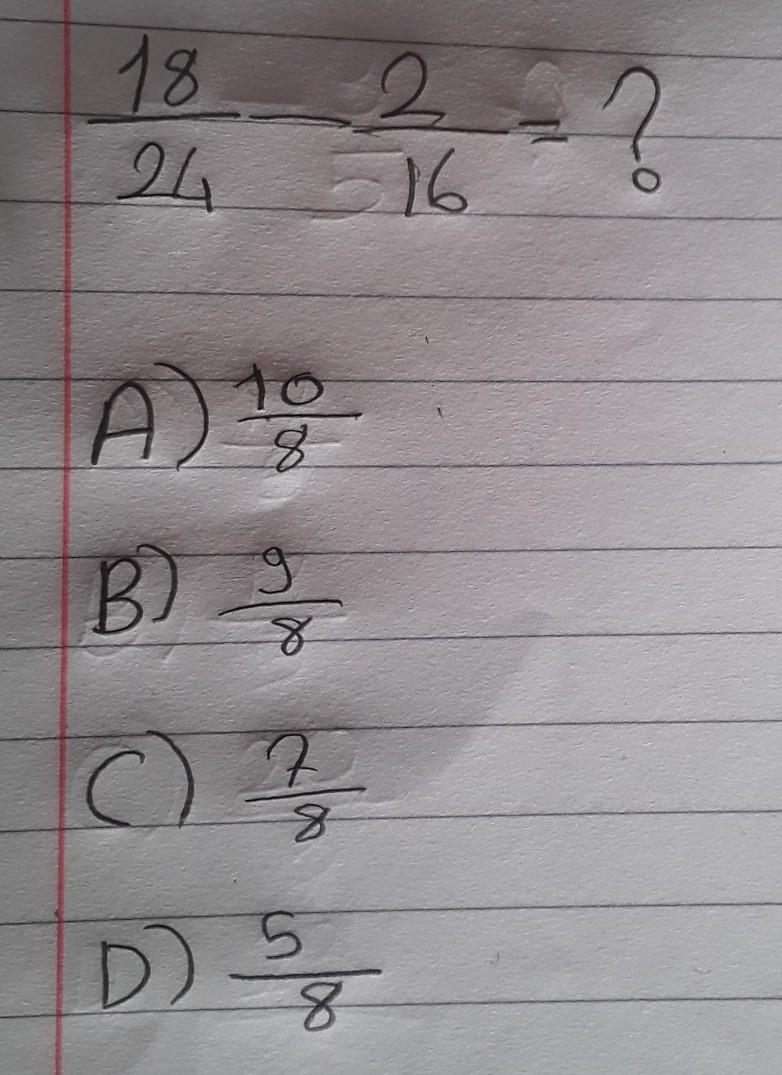 18/24 - 2/16 = ?
A) 10/8
B) 9/8
C) 7/8
D) 5/8